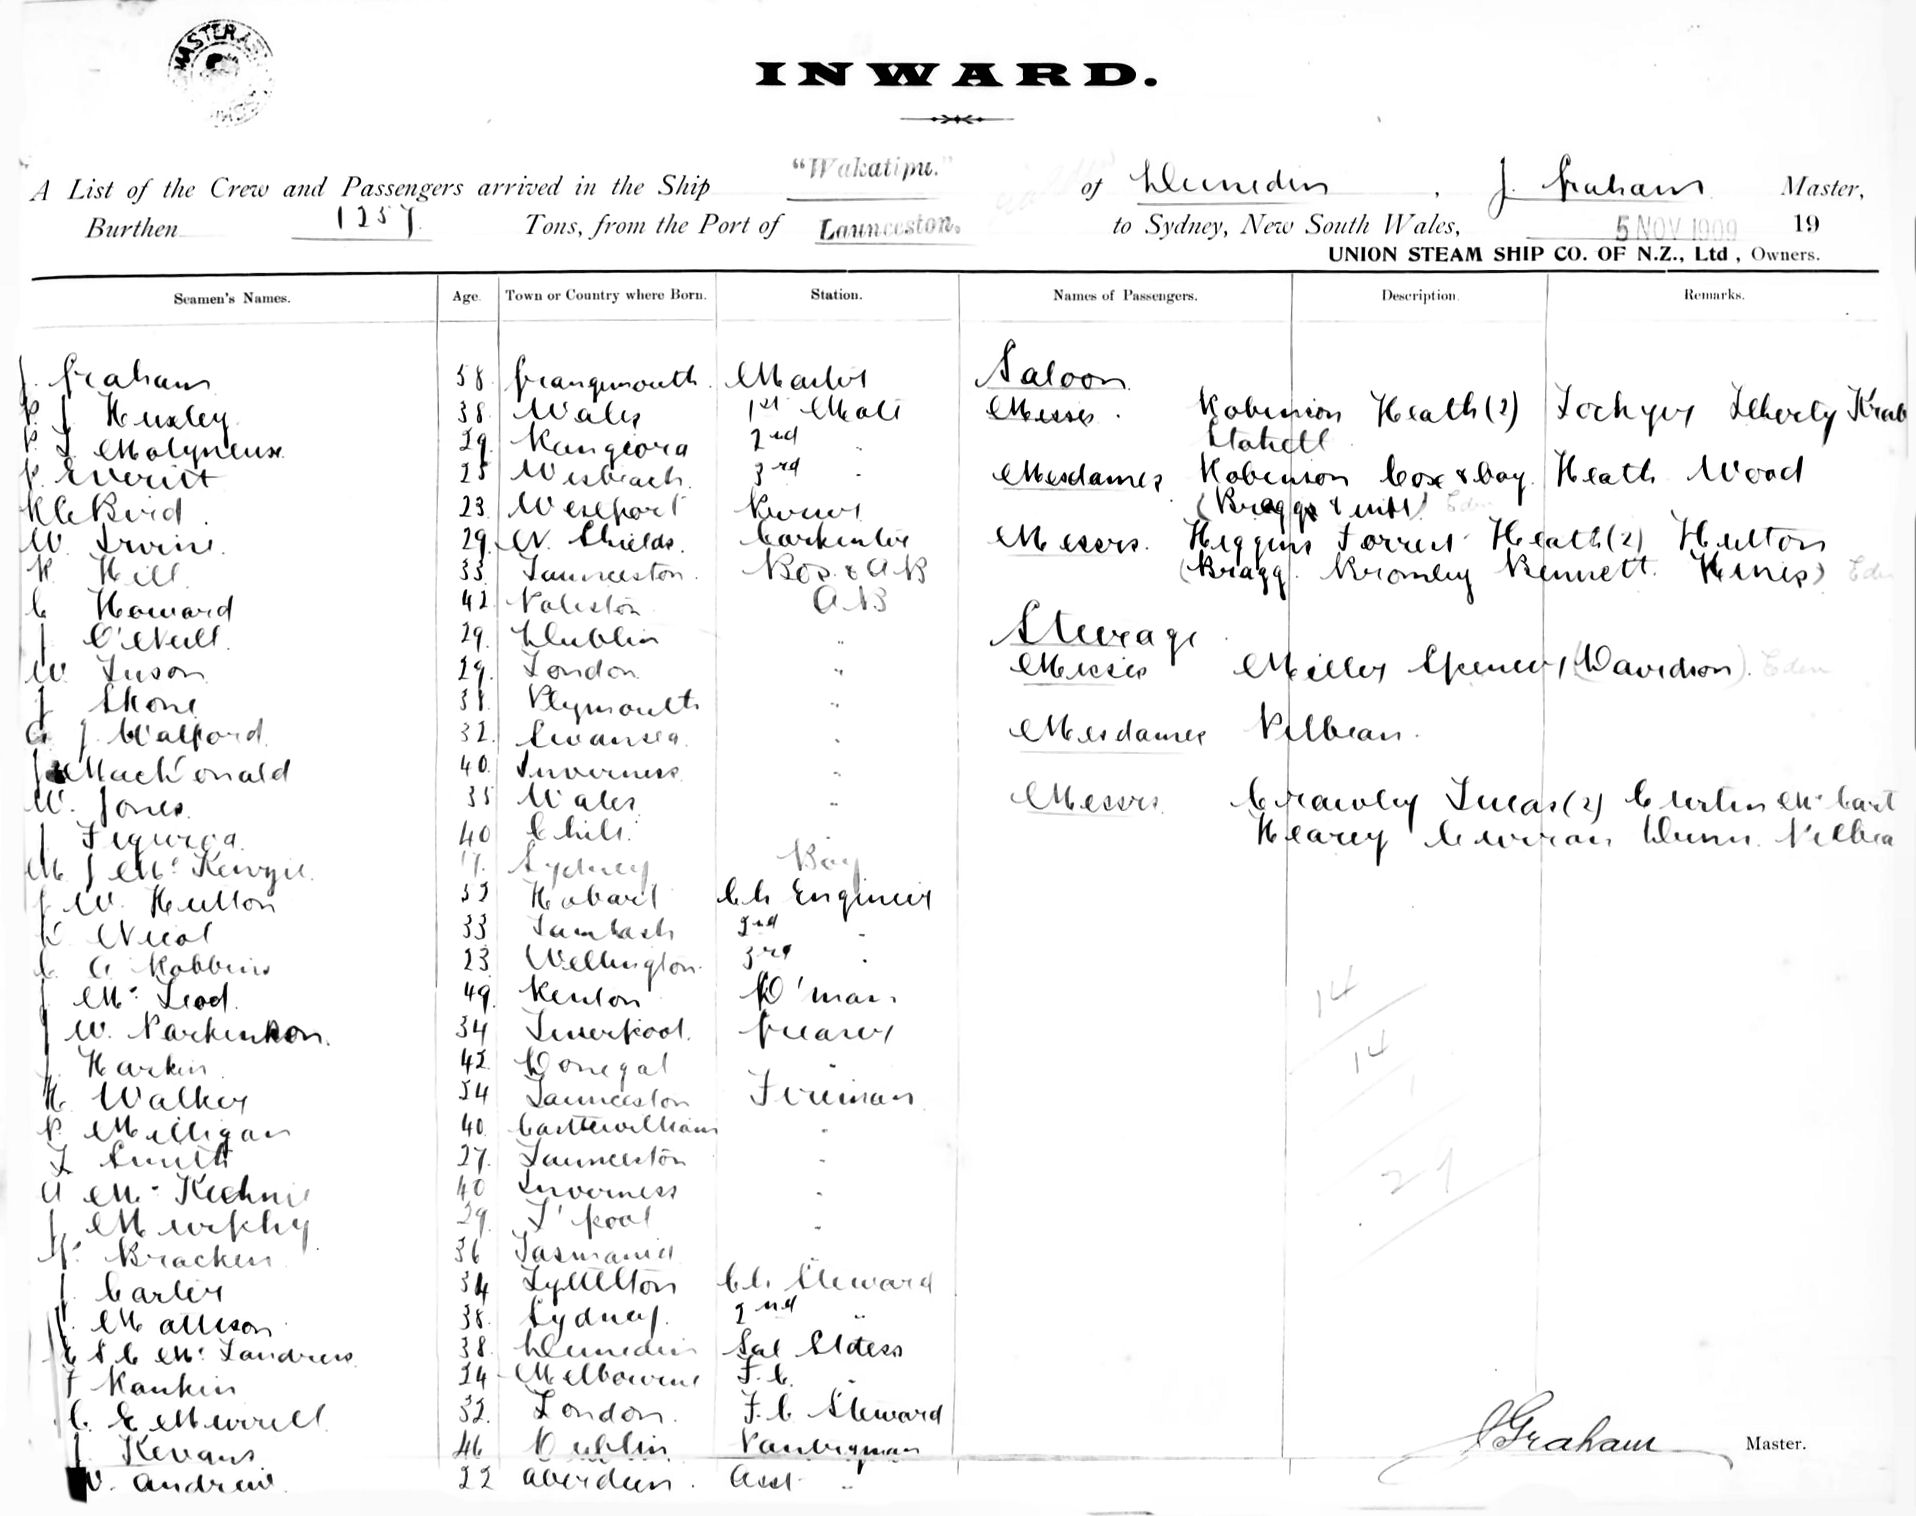 MASTER
INWARD.
A List of the Crew and Passengers arrived in the Ship "Wakatipu." of Dunedin, J. Graham Master,
Burthen 1257 Tons, from the Port of Launceston. to Sydney, New South Wales, 5 NOV 1909 19
UNION STEAM SHIP CO. OF N.Z., Ltd, Owners.
Seamen's Names. Age. Town or Country where Born. Station. Names of Passengers. Description. Remarks.
J. Graham 58 Grangemouth Master Saloon
J Huxley 38 Wales 1st Mate Messrs. Robinson Heath (2) Lockyer Krab
Molyneux 29 Rangiora 2nd "
Everitt 25 Wisbeach 3rd " Mesdames Robinson Cox & boy Heath Wood
Bird 23 Westport (Braggs & inft) Eden
W. Irvine 29 N. Shields. Carpenter Messrs. Higgins Forrest Heath (2) Hutton
Hill 33 Launceston Bos. & AB (Bragg. Bromley Bennett. ) Eden
C Howard 42 AB
J O'Neill 29 Dublin " Steerage
W. 29 London " Messrs Miller Spencer (Davidson). Eden
J Skone 31 Plymouth "
G J Walford 32 Swansea " Mesdames Pilbean.
J MacDonald 40 Inverness "
W. Jones 35 Wales " Messrs Crawley Lucas (2) Curtin McCart
J Figueroa 40 Chili " Curran Dunn
M J McKenzie 17 Sydney Boy
J W. Hutton 52 Hobart Ch Engineer
Nicol 33 2nd "
C A Robbins 23 Wellington 3rd "
J McLeod 49 Renton D'man
J W. Parkinson 34 Liverpool Greaser 14
J Harkin 42 Donegal " 14
H Walker 54 Launceston Fireman
P. Milligan 40 Castlewilliam "
L Smith 27 Launceston " 29
A McKechnie 40 Inverness "
J Murphy 29 L'pool "
Bracken 36 Tasmania "
J. Carter 34 Lyttelton Ch Steward
J. Mattison 38 Sydney 2nd "
McLandress 38 Dunedin Sal Stdess
F Rankin 24 Melbourne F.C. "
C E Merrell 32 London F.C Steward
J. Kevans 46 Dublin Pantryman JGraham Master.
Andrew 22 Aberdeen Asst "